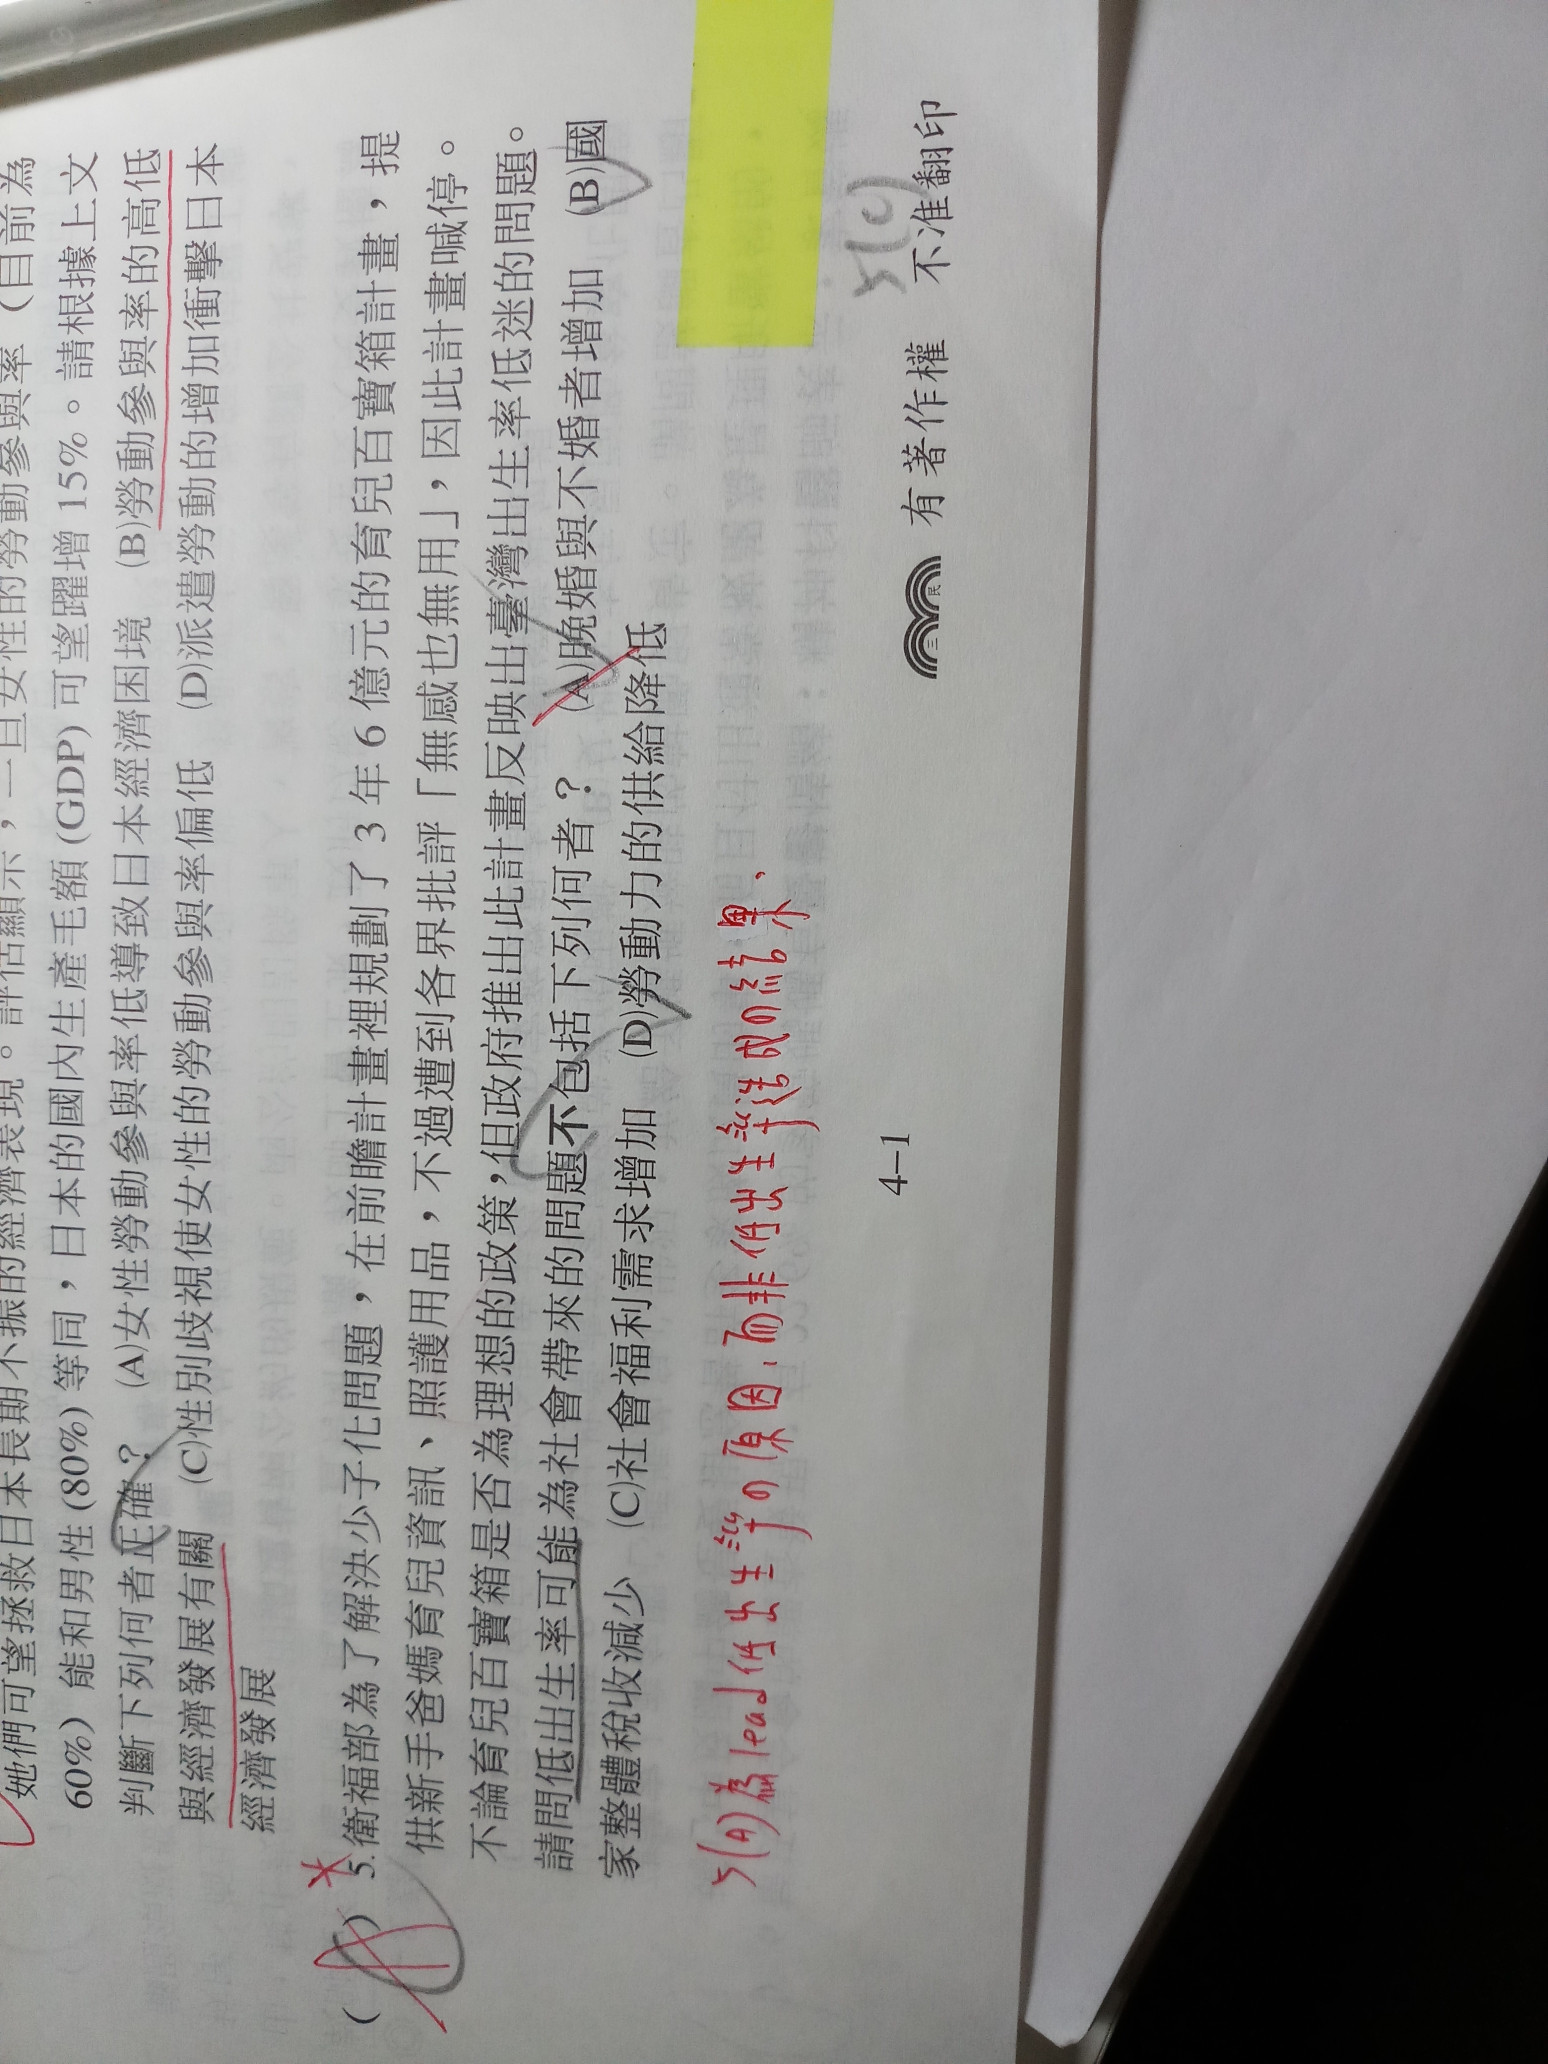 她們可望拯救日本長期不振的經濟表現。評估顯示，一旦女性的勞動參與率（目前為
60%）能和男性(80%)等同，日本的國內生產毛額(GDP)可望躍增15%。請根據上文
判斷下列何者正確？ (A)女性勞動參與率低導致日本經濟困境 (B)勞動參與率的高低
與經濟發展有關 (C)性別歧視使女性的勞動參與率偏低 (D)派遣勞動的增加衝擊日本
經濟發展
( A ) 5.衛福部為了解決少子化問題，在前瞻計畫裡規劃了3年6億元的育兒百寶箱計畫，提
供新手爸媽育兒資訊、照護用品，不過遭到各界批評「無感也無用」，因此計畫喊停。
不論育兒百寶箱是否為理想的政策，但政府推出此計畫反映出臺灣出生率低迷的問題。
請問低出生率可能為社會帶來的問題不包括下列何者？ (A)晚婚與不婚者增加 (B)國
家整體稅收減少 (C)社會福利需求增加 (D)勞動力的供給降低
5(A)為lead低出生率的原因，而非低出生率造成的結果、
5(C)
4–1
三民 有著作權 不准翻印